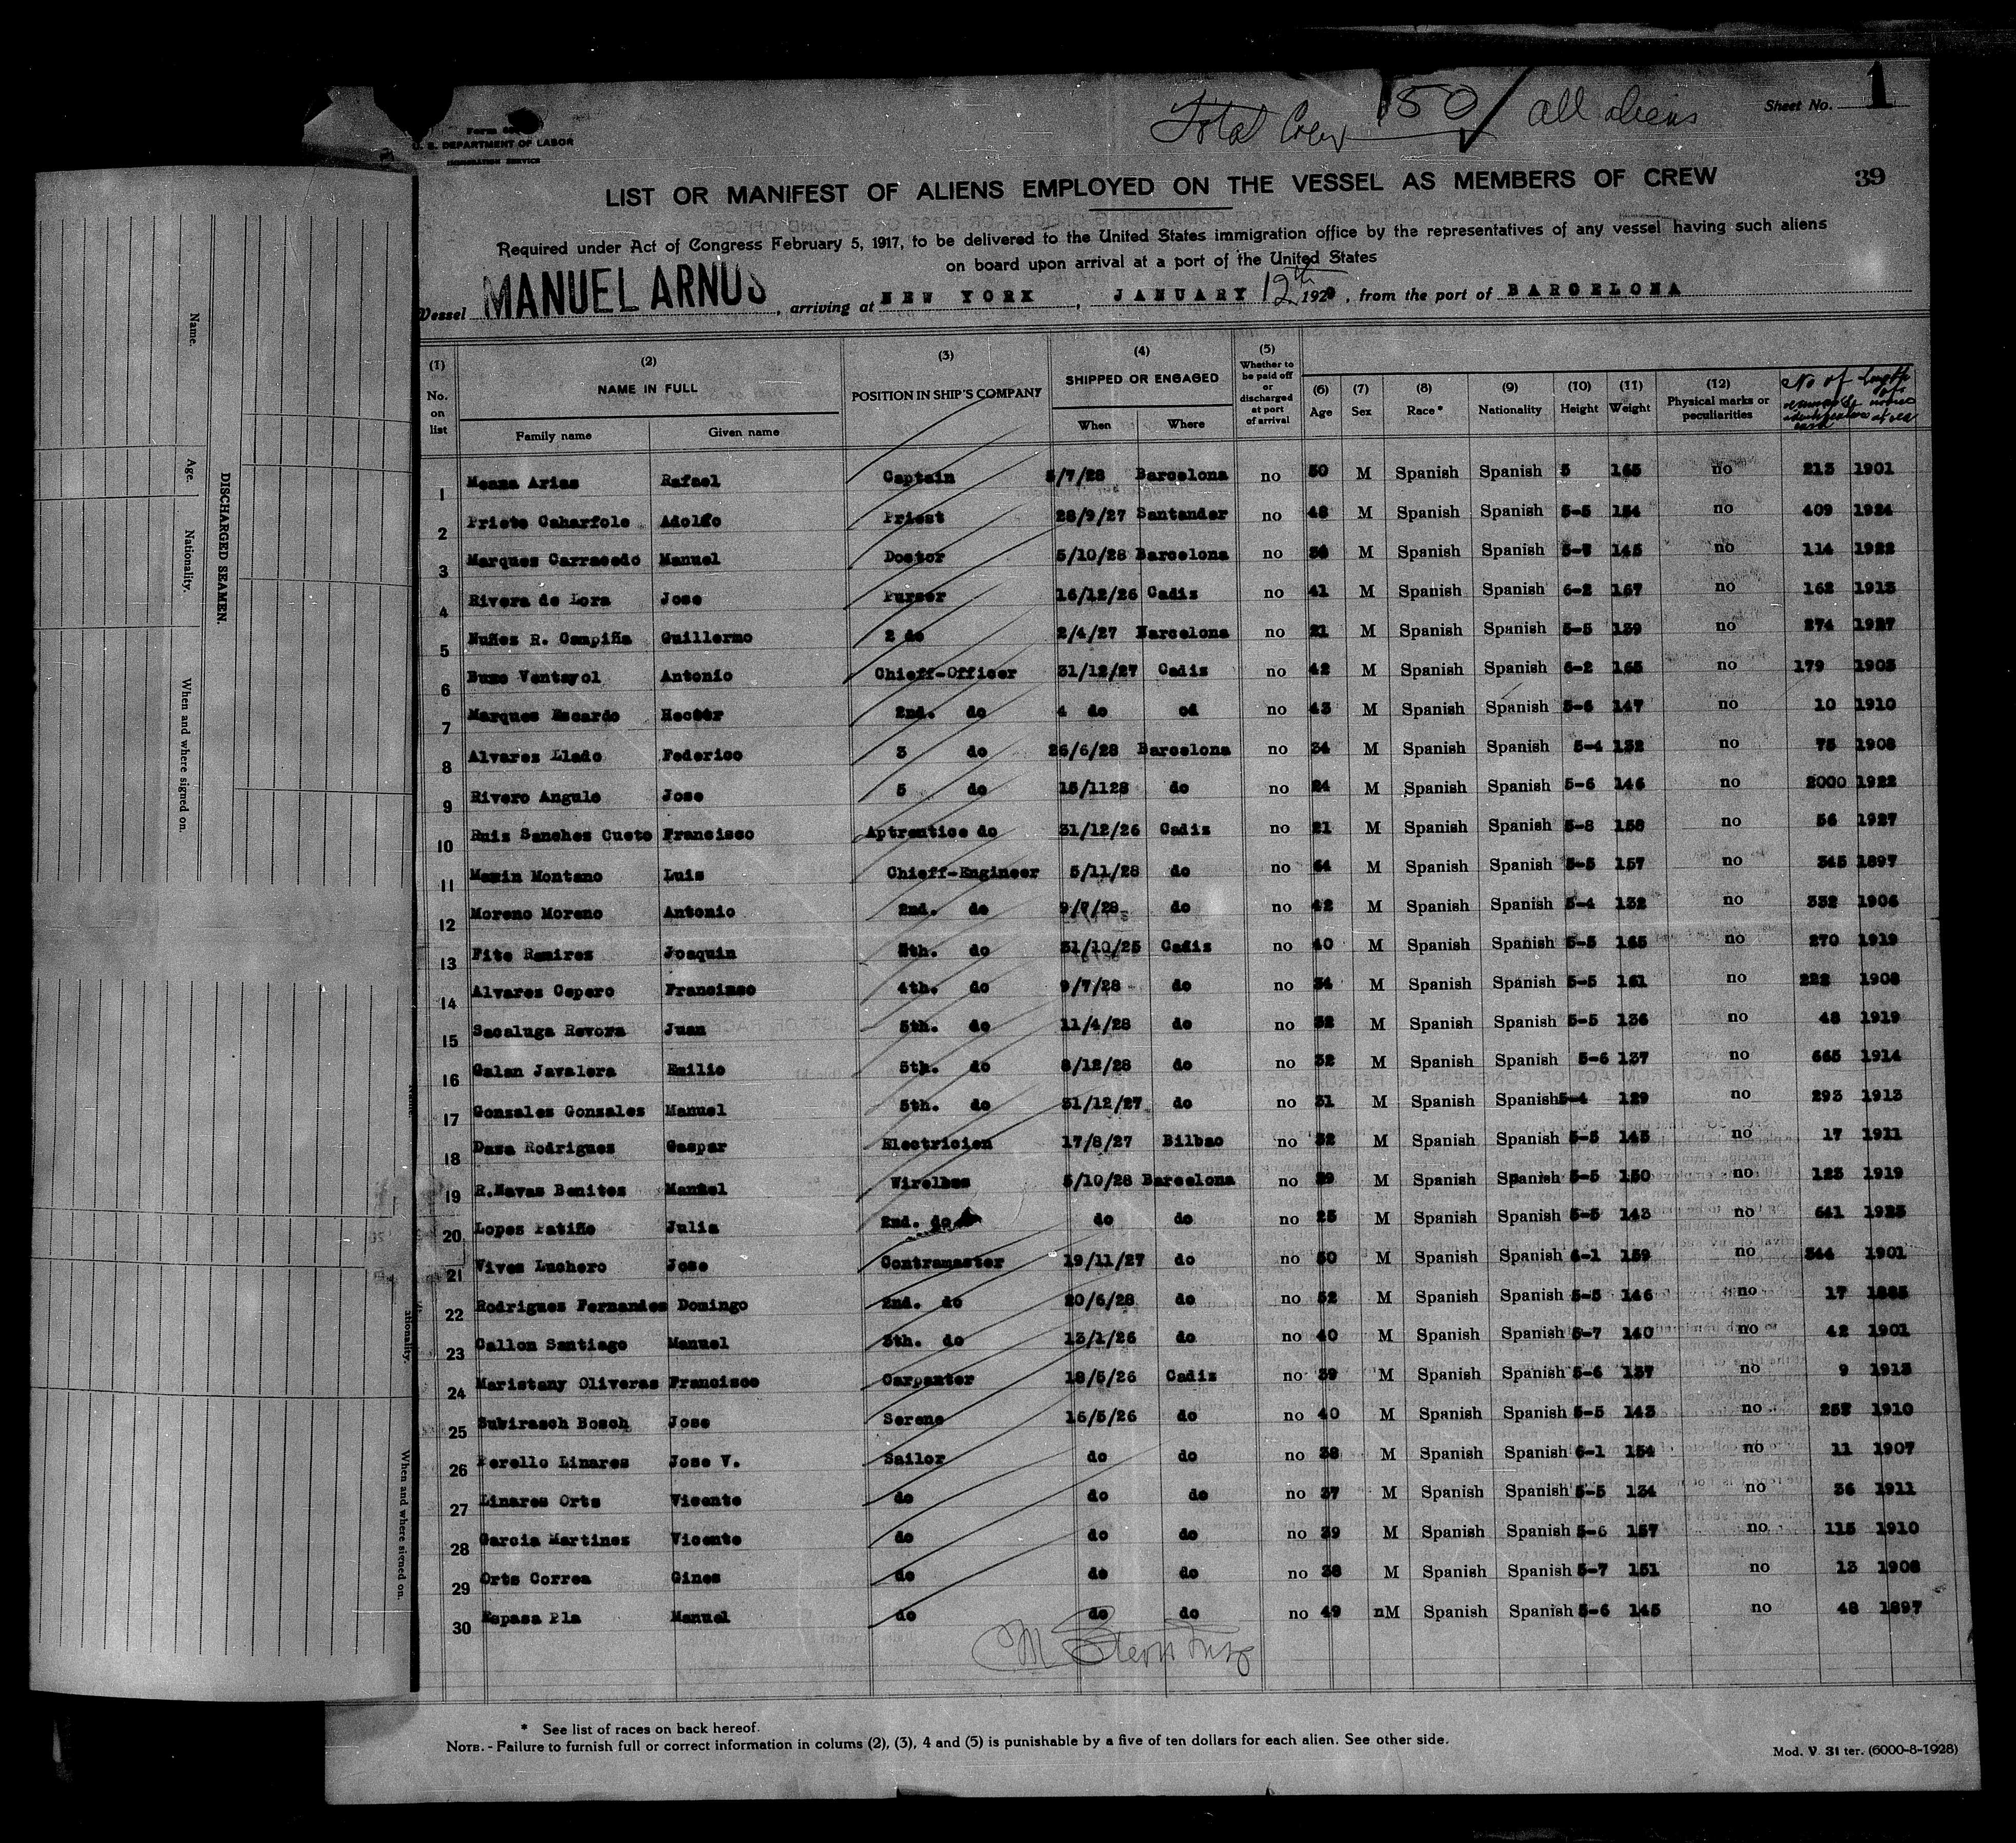 Total Crew 150 all aliens
Sheet No. 1
U. S. DEPARTMENT OF LABOR
IMMIGRATION SERVICE
39
LIST OR MANIFEST OF ALIENS EMPLOYED ON THE VESSEL AS MEMBERS OF CREW
Required under Act of Congress February 5, 1917, to be delivered to the United States immigration office by the representatives of any vessel having such aliens
on board upon arrival at a port of the United States
Vessel MANUEL ARNUS, arriving at NEW YORK, JANUARY 12th 1929, from the port of BARCELONA
(1) No. on list (2) NAME IN FULL Family name Given name (3) POSITION IN SHIP'S COMPANY (4) SHIPPED OR ENGAGED When Where (5) Whether to be paid off or discharged at port of arrival (6) Age (7) Sex (8) Race* (9) Nationality (10) Height (11) Weight (12) Physical marks or peculiarities No of Length of at sea
1 Arias Rafael Captain 5/7/28 Barcelona no 50 M Spanish Spanish 5 165 no 213 1901
2 Prieto Adolfo Priest 28/9/27 Santander no 48 M Spanish Spanish 5-5 154 no 409 1924
3 Marques Carracedo Manuel Doctor 5/10/28 Barcelona no M Spanish Spanish 145 no 114 1922
4 Rivera de Lora Jose Purser 16/12/26 Cadiz no 41 M Spanish Spanish 6-2 167 no 162 1913
5 Nuñez R. Campiña Guillermo 2 do 2/4/27 Barcelona no 21 M Spanish Spanish 5-5 139 no 274 1927
6 Ventayol Antonio Chieff-Officer 31/12/27 Cadiz no 42 M Spanish Spanish 6-2 165 no 179 1903
7 Marques Escardo Hector 2nd. do 4 do od no 43 M Spanish Spanish 5-6 147 no 10 1910
8 Alvarez Llado Federico 3 do 26/6/28 Barcelona no 34 M Spanish Spanish 5-4 132 no 75 1908
9 Rivero Angulo Jose 5 do 15/1128 do no 24 M Spanish Spanish 5-6 146 no 2000 1922
10 Ruiz Sanches Cueto Francisco Aptrentice do 31/12/26 Cadiz no 21 M Spanish Spanish 5-8 158 no 56 1927
11 Montano Luis Chieff-Engineer 5/11/28 do no 64 M Spanish Spanish 5-5 157 no 345 1897
12 Moreno Moreno Antonio 2nd. do 9/7/28 do no 42 M Spanish Spanish 5-4 132 no 332 1906
13 Fite Ramirez Joaquin do 31/10/25 Cadiz no 40 M Spanish Spanish 5-5 165 no 270 1919
14 Alvarez Cepero Francisco 4th. do 9/7/28 do no 34 M Spanish Spanish 5-5 161 no 222 1908
15 Sacaluga Revora Juan 5th. do 11/4/28 do no 32 M Spanish Spanish 5-5 136 no 48 1919
16 Galan Javalera Emilio 5th. do 8/12/28 do no 32 M Spanish Spanish 5-6 137 no 665 1914
17 Gonzales Gonzales Manuel 5th. do 31/12/27 do no 31 M Spanish Spanish 5-4 129 no 293 1913
18 Rodrigues Gaspar Electricien 17/8/27 Bilbao no 32 M Spanish Spanish 5-5 145 no 17 1911
19 R.Navas Benitez Manuel Wireless 5/10/28 Barcelona no 29 M Spanish Spanish 5-5 150 no 123 1919
20 Lopes Patiño Julia 2nd. do do do no 25 M Spanish Spanish 5-5 143 no 641 1923
21 Vives Luchoro Jose Contramaster 19/11/27 do no 50 M Spanish Spanish 6-1 159 no 344 1901
22 Rodrigues Fernandes Domingo 2nd. do 20/6/28 do no 52 M Spanish Spanish 5-5 146 no 17
23 Callon Santiago Manuel 3th. do 13/1/26 do no 40 M Spanish Spanish 5-7 140 no 42 1901
24 Maristany Oliveras Francisco Carpenter 18/5/26 Cadiz no 39 M Spanish Spanish 5-6 137 no 9 1913
25 Subirasch Bosch Jose Sereno 16/5/26 do no 40 M Spanish Spanish 5-5 143 no 1910
26 Perello Linares Jose V. Sailor do do no 38 M Spanish Spanish 6-1 154 no 11 1907
27 Linares Orts Vicente do do do no 37 M Spanish Spanish 5-5 134 no 36 1911
28 Garcia Martinez Vicente do do do no 39 M Spanish Spanish 5-6 157 no 115 1910
29 Orts Correa Gines do do do no 38 M Spanish Spanish 5-7 151 no 13 1908
30 Espasa Pla Manuel do do do no 49 nM Spanish Spanish 5-6 145 no 48 1897
* See list of races on back hereof.
NOTE. - Failure to furnish full or correct information in colums (2), (3), 4 and (5) is punishable by a five of ten dollars for each alien. See other side.
Mod. V. 31 ter. (6000-8-1928)
DISCHARGED SEAMEN.
Name. Age. Nationality. When and where signed on.
When and where signed on.